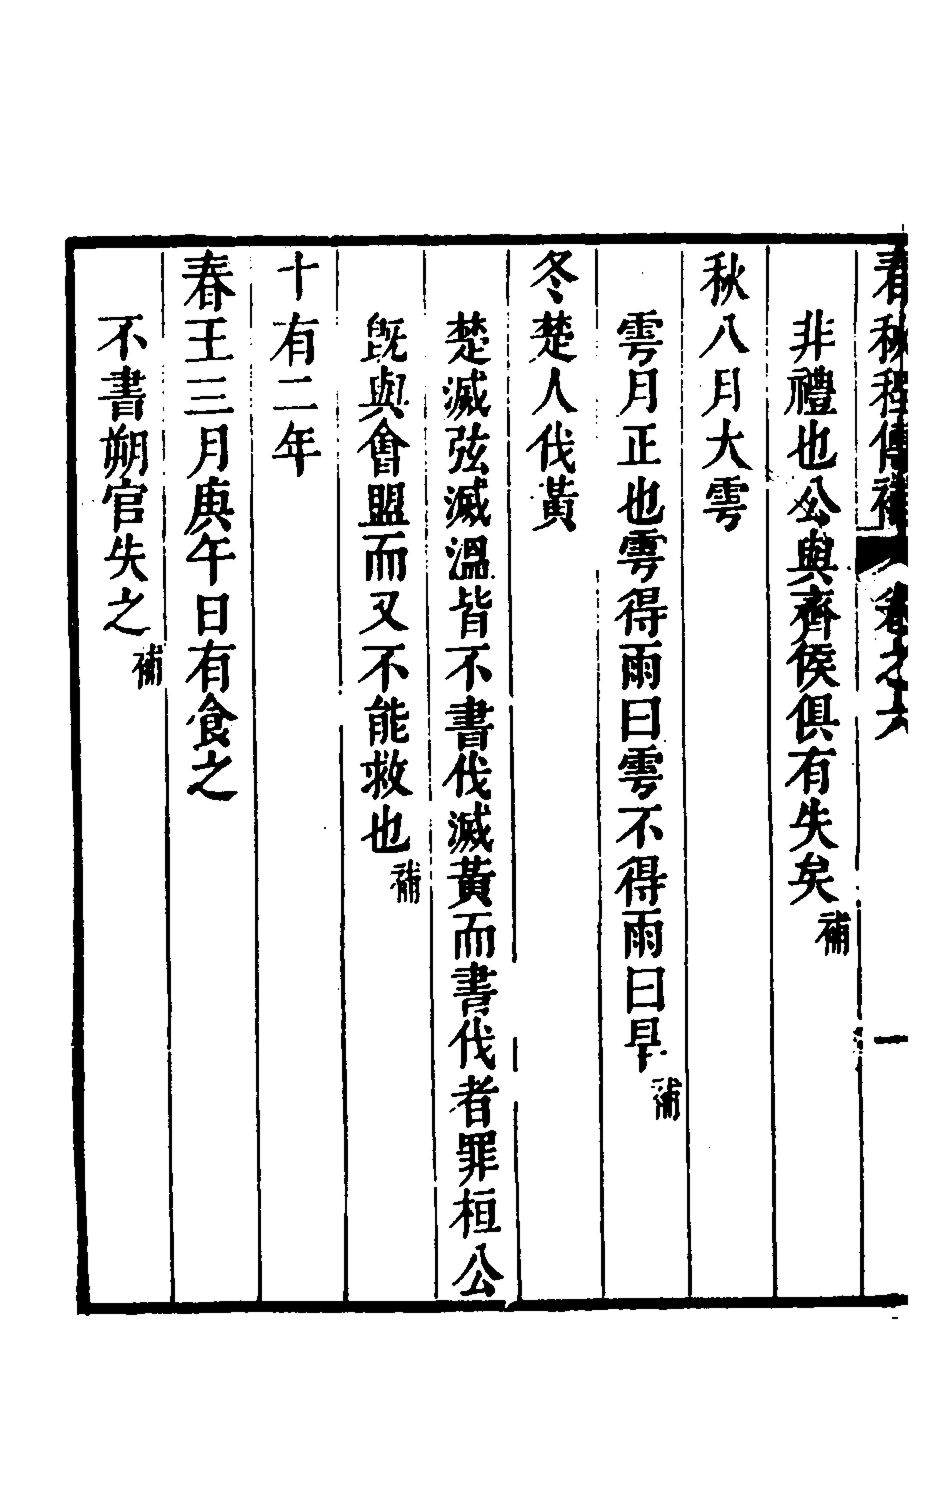 春秋程傳補　卷之六　一
非禮也公與齊侯俱有失矣補
秋八月大雩
雩月正也雩得雨曰雩不得雨曰旱補
冬楚人伐黃
楚滅弦滅溫皆不書伐滅黃而書伐者罪桓公
旣與會盟而又不能救也補
十有二年
春王三月庚午日有食之
不書朔官失之補